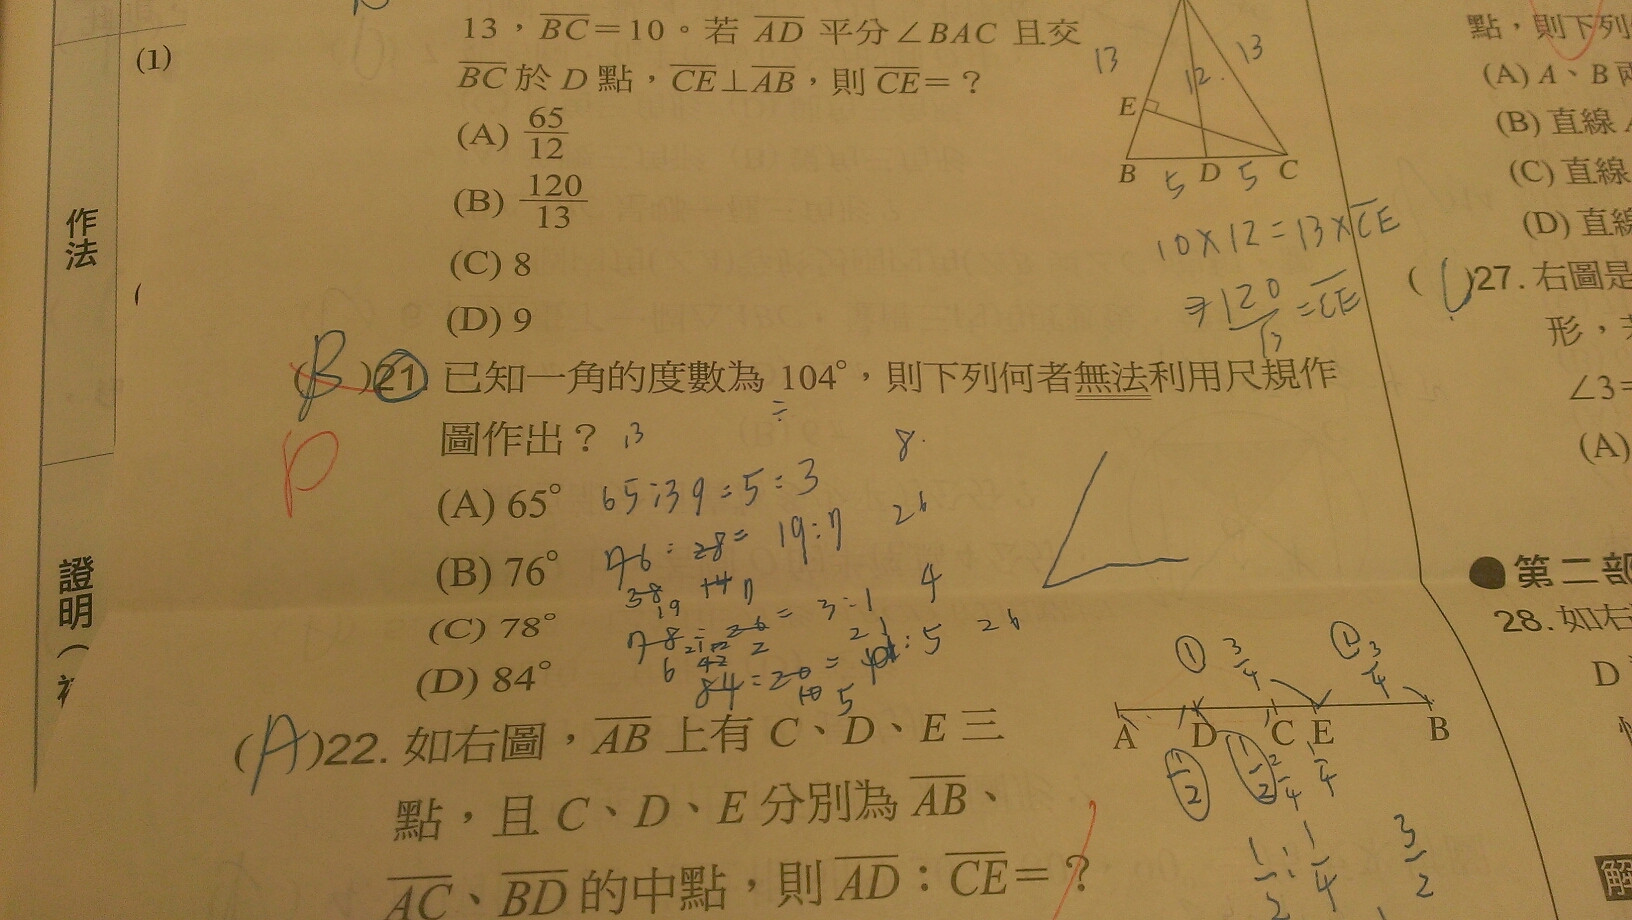 (1)
作法
證明(
13，BC=10。若 AD 平分∠BAC 且交
BC 於 D 點，CE⊥AB，則 CE=？
(A) 65/12
(B) 120/13
(C) 8
(D) 9
13
12
13
E
B
D
C
5
5
10×12=13×CE
⇒120/13=CE
(B)21. 已知一角的度數為 104°，則下列何者無法利用尺規作
圖作出？
13
8
D
(A) 65°
65:39=5:3
26
(B) 76°
76:28=19:7
38
19
14 7
4
(C) 78°
78:26=3:1
26
(D) 84°
84:20=21:5
10 5
(A)22. 如右圖，AB 上有 C、D、E 三
點，且 C、D、E 分別為 AB、
AC、BD 的中點，則 AD：CE=？
① 3/4
① 3/4
A
D
C
E
B
1/2
1/2
2/4
1/4
1/2:1/4
3/2
點，則下列
(A) A、B 兩
(B) 直線
(C) 直線
(D) 直線
( )27. 右圖是
形，若
∠3=
(A)
●第二部
28. 如右
D
解